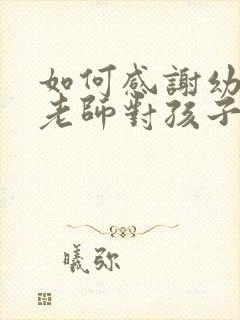 如何感謝幼
老師對孩子
曦弥